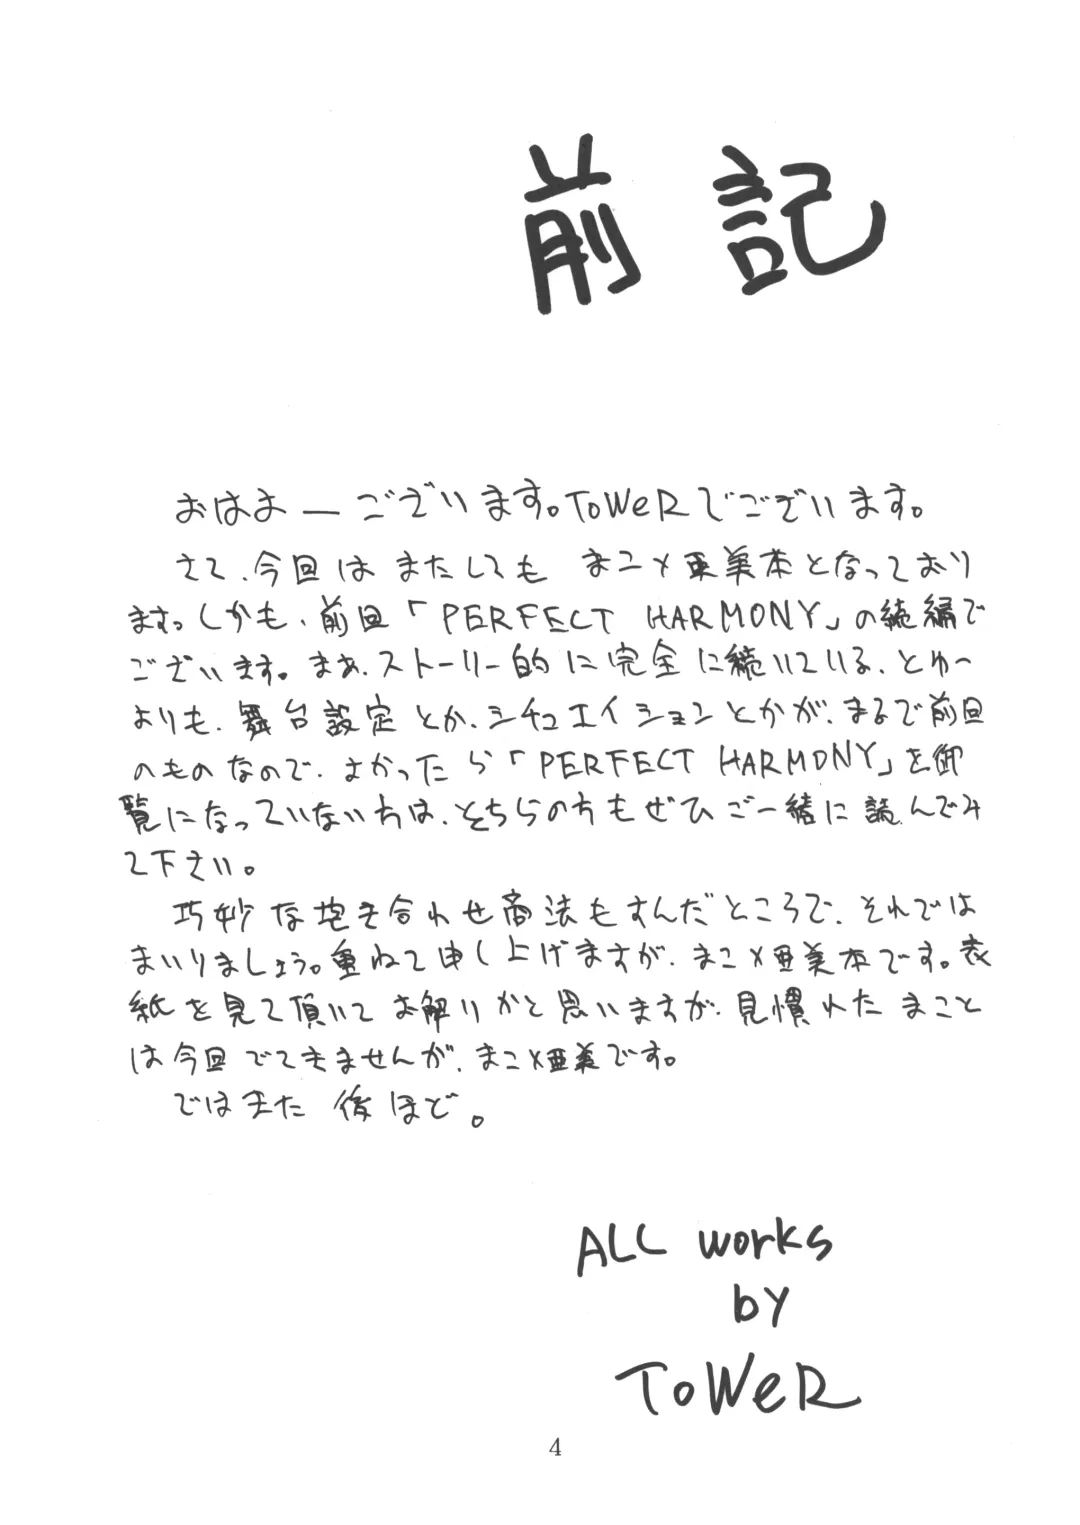 前記
おはよーございます。ToWeRでございます。
さて、今回はまたしても まこ×亜美本となっており
ます。しかも、前回「PERFECT HARMONY」の続編で
ございます。まぁ、ストーリー的に完全に続いている、とゆー
よりも、舞台設定とか、シチュエイションとかが、まるで前回
のものなので、よかったら「PERFECT HARMONY」を御
覧になっていない方は、そちらの方もぜひご一緒に読んでみ
て下さい。
巧妙な抱き合わせ商法もすんだところで、それでは
まいりましょう。重ねて申し上げますが、まこ×亜美本です。表
紙を見て頂いて お解りかと思いますが、見慣れた まこと
は今回 でてきませんが、まこ×亜美です。
ではまた 後ほど。
ALL works
by
ToWeR
4